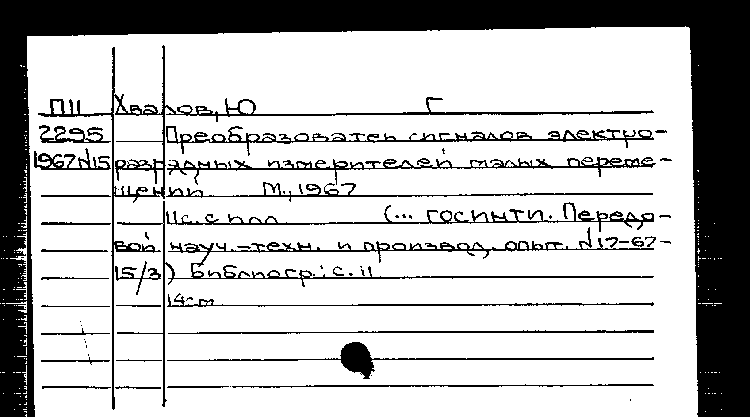 П11 Хвалов, Ю Г
2295 Преобразовател сигналов электро-
1967 N15 разрядных измерителей малых переме-
щений М., 1967
11с. с илл (... ГОСИНТИ. Передо-
вой науч.-техн. и производ. опыт. N 17-67-
15/3) Библиогр.: с. 11
14см